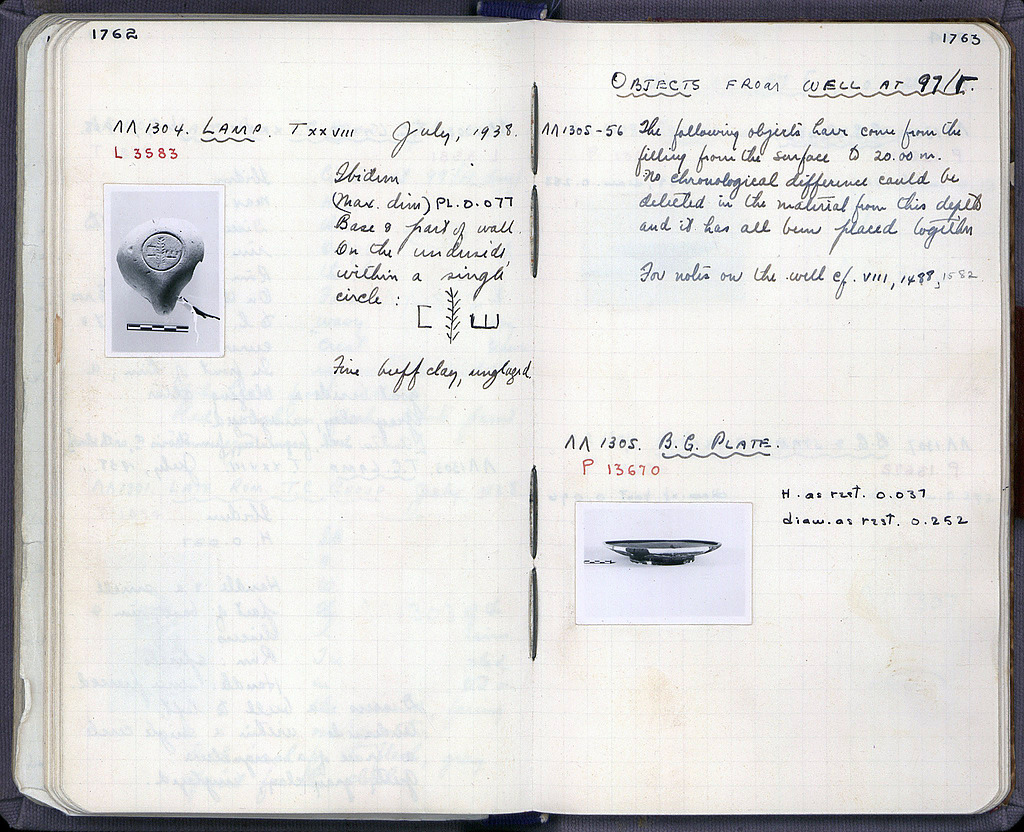 1762
ΛΛ 1304. LAMP T XXVIII July, 1938.
L 3583
Ibidem
(Max. dim) PL. 0.077
Base & part of wall.
On the underside,
within a single
circle :
Fine buff clay, unglazed.
1763
OBJECTS FROM WELL AT 97/Γ.
ΛΛ 1305-56 The following objects have come from the
filling from the surface to 20.00 m.
No chronological difference could be
detected in the material from this depth
and it has all been placed together
For notes on the well cf. VIII, 1488, 1582
ΛΛ 1305. B.G. PLATE.
P 13670
H. as rest. 0.037
diam. as rest. 0.252